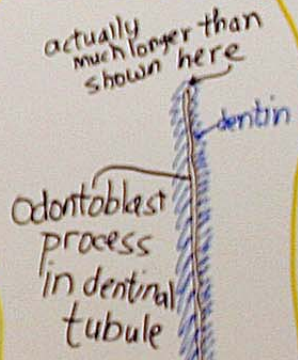 actually
much longer than
shown here
dentin
odontoblast
process
in dentinal
tubule